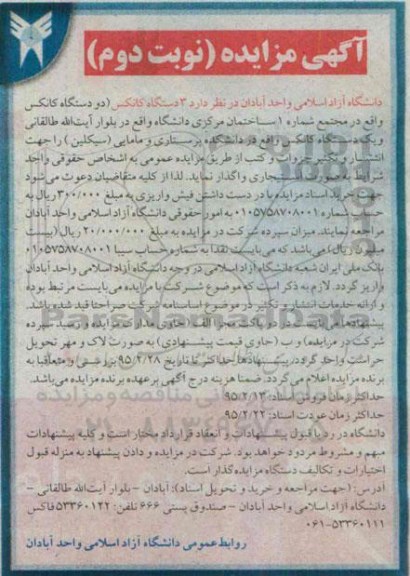 آگهی مزایده (نوبت دوم)
دانشگاه آزاد اسلامی واحد آبادان در نظر دارد ۳ دستگاه کانکس (دو دستگاه کانکس
واقع در مجتمع شماره ۱ ساختمان مرکزی دانشگاه واقع در بلوار آیت‌الله طالقانی
و یک دستگاه کانکس واقع در دانشکده پرستاری و مامایی (سیکلین) را جهت
انتشار و تکثیر جزوات و کتب از طریق مزایده عمومی به اشخاص حقوقی واجد
شرایط به صورت استیجاری واگذار نماید. لذا از کلیه متقاضیان دعوت می‌شود
جهت خرید اسناد مزایده با در دست داشتن فیش واریزی به مبلغ ۳۰۰/۰۰۰ ریال به
حساب شماره ۰۱۰۵۷۵۸۷۰۸۰۰۱ به امور حقوقی دانشگاه آزاد اسلامی واحد آبادان
مراجعه نمایند. میزان سپرده شرکت در مزایده به مبلغ ۲۰/۰۰۰/۰۰۰ ریال (بیست
میلیون ریال) می‌باشد که می‌بایست نقدا به شماره حساب سیبا ۰۱۰۵۷۵۸۷۰۸۰۰۱
بانک ملی ایران شعبه دانشگاه آزاد اسلامی در وجه دانشگاه آزاد اسلامی واحد آبادان
واریز گردد. لازم به ذکر است که موضوع شرکت با مزایده می‌بایست مرتبط بوده
و ارائه خدمات انتشار و تکثیر در موضوع اساسنامه شرکت صراحتا قید شده باشد.
پیشنهادها می‌بایست در دو پاکت مجزا الف (حاوی مدارک مزایده و رسید سپرده
شرکت در مزایده) و ب (حاوی قیمت پیشنهادی) به صورت لاک و مهر تحویل
حراست واحد گردد. پیشنهادها حداکثر تا تاریخ ۹۵/۲/۲۸ بررسی و متعاقبا به
برنده مزایده اعلام می‌گردد. ضمنا هزینه درج آگهی بر عهده برنده مزایده می‌باشد.
حداکثر زمان فروش اسناد: ۹۵/۲/۱۳
حداکثر زمان عودت اسناد: ۹۵/۲/۲۲
دانشگاه در رد یا قبول پیشنهادات و انعقاد قرارداد مختار است و کلیه پیشنهادات
مبهم و مشروط مردود خواهد بود. شرکت در مزایده و دادن پیشنهاد به منزله قبول
اختیارات و تکالیف دستگاه مزایده‌گذار است.
آدرس: (جهت مراجعه و خرید و تحویل اسناد): آبادان - بلوار آیت‌الله طالقانی -
دانشگاه آزاد اسلامی واحد آبادان - صندوق پستی ۶۶۶ تلفن: ۵۳۳۶۰۱۲۲ فاکس
۰۶۱-۵۳۳۶۰۱۱۱
روابط عمومی دانشگاه آزاد اسلامی واحد آبادان
ParsNamadData